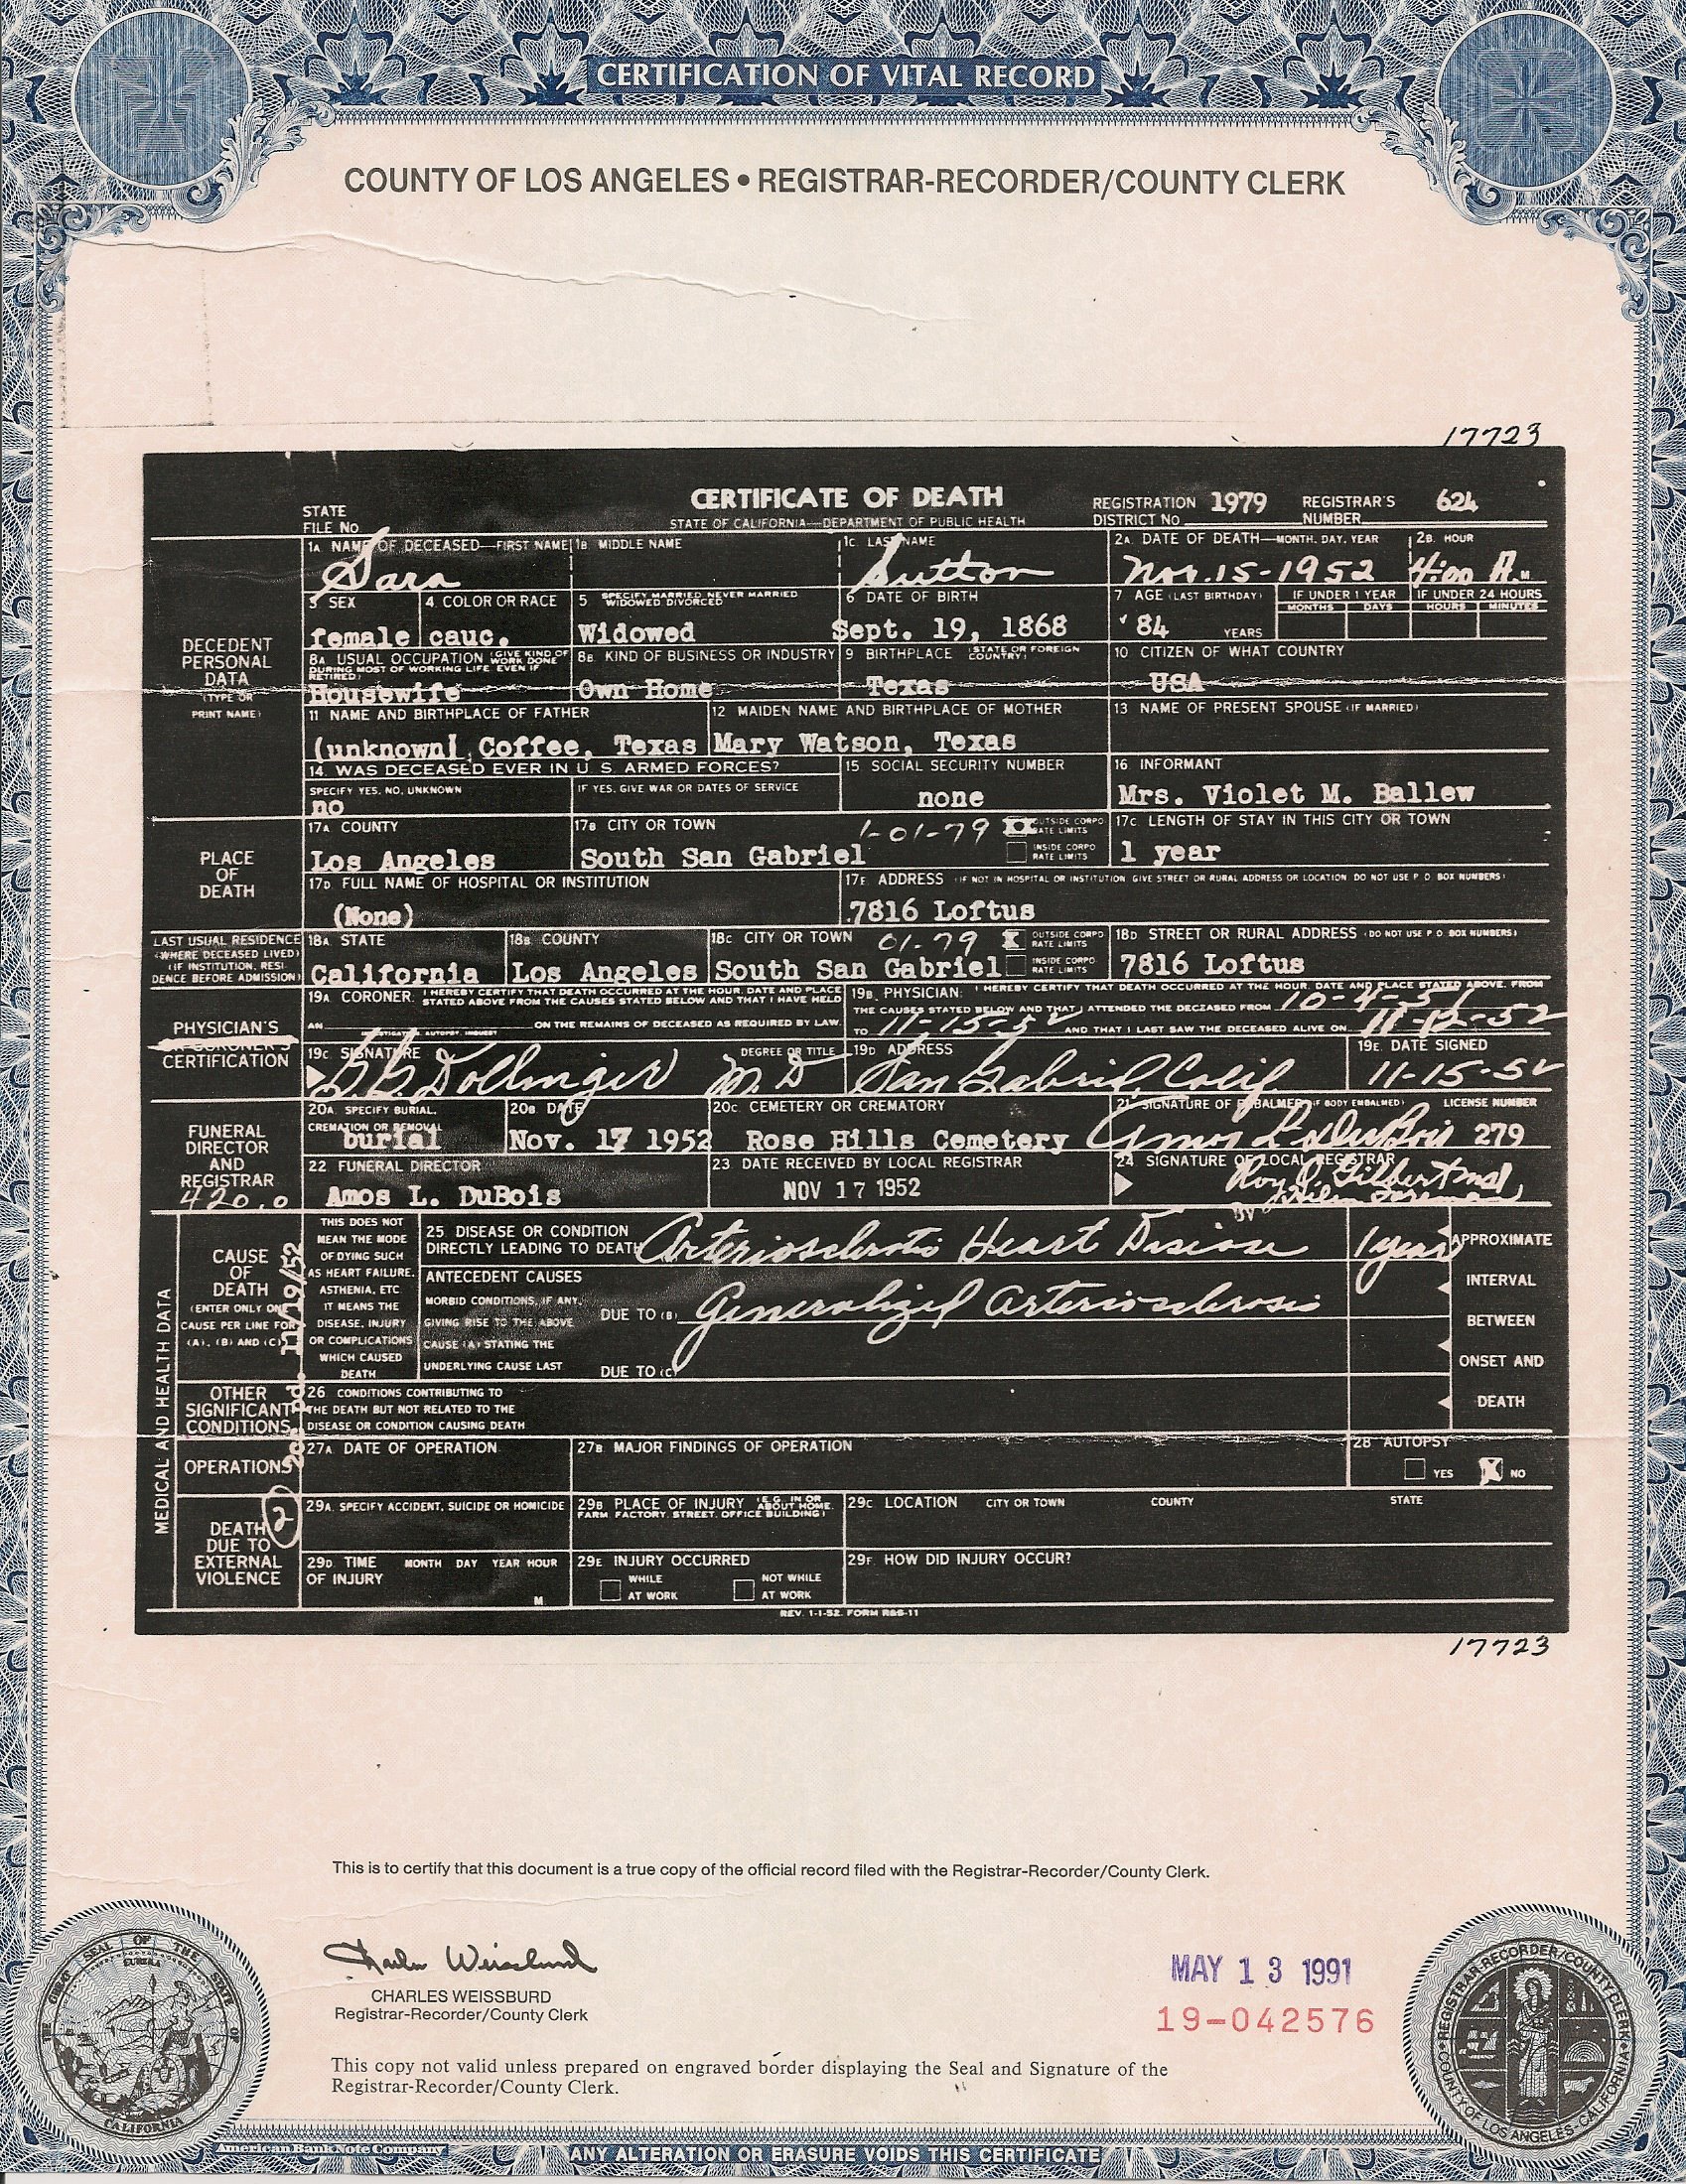 CERTIFICATION OF VITAL RECORD
COUNTY OF LOS ANGELES • REGISTRAR-RECORDER/COUNTY CLERK
17723
CERTIFICATE OF DEATH
STATE OF CALIFORNIA—DEPARTMENT OF PUBLIC HEALTH
STATE FILE NO.
REGISTRATION DISTRICT NO. 1979
REGISTRAR'S NUMBER 624
DECEDENT PERSONAL DATA (TYPE OR PRINT NAME)
1A NAME OF DECEASED—FIRST NAME Sara
1B MIDDLE NAME
1C. LAST NAME Sutton
2A. DATE OF DEATH—MONTH, DAY, YEAR Nov. 15-1952
2B. HOUR 4:00 A. M
3 SEX female
4. COLOR OR RACE cauc.
5 SPECIFY MARRIED NEVER MARRIED WIDOWED DIVORCED Widowed
6 DATE OF BIRTH Sept. 19, 1868
7 AGE (LAST BIRTHDAY) 84 YEARS
IF UNDER 1 YEAR MONTHS DAYS
IF UNDER 24 HOURS HOURS MINUTES
8A USUAL OCCUPATION (GIVE KIND OF WORK DONE DURING MOST OF WORKING LIFE EVEN IF RETIRED) Housewife
8B KIND OF BUSINESS OR INDUSTRY Own Home
9 BIRTHPLACE (STATE OR FOREIGN COUNTRY) Texas
10 CITIZEN OF WHAT COUNTRY USA
11 NAME AND BIRTHPLACE OF FATHER (unknown) Coffee, Texas
12 MAIDEN NAME AND BIRTHPLACE OF MOTHER Mary Watson, Texas
13 NAME OF PRESENT SPOUSE (IF MARRIED)
14. WAS DECEASED EVER IN U. S. ARMED FORCES?
SPECIFY YES, NO, UNKNOWN no
IF YES, GIVE WAR OR DATES OF SERVICE
15 SOCIAL SECURITY NUMBER none
16 INFORMANT Mrs. Violet M. Ballew
PLACE OF DEATH
17A COUNTY Los Angeles
17B CITY OR TOWN South San Gabriel 1-01-79
OUTSIDE CORPORATE LIMITS
INSIDE CORPORATE LIMITS
17C LENGTH OF STAY IN THIS CITY OR TOWN 1 year
17D. FULL NAME OF HOSPITAL OR INSTITUTION (None)
17E. ADDRESS (IF NOT IN HOSPITAL OR INSTITUTION GIVE STREET OR RURAL ADDRESS OR LOCATION DO NOT USE P O BOX NUMBERS) 7816 Loftus
LAST USUAL RESIDENCE (WHERE DECEASED LIVED) (IF INSTITUTION, RESIDENCE BEFORE ADMISSION)
18A STATE California
18B COUNTY Los Angeles
18C CITY OR TOWN South San Gabriel 01-79
OUTSIDE CORPORATE LIMITS
INSIDE CORPORATE LIMITS
18D STREET OR RURAL ADDRESS (DO NOT USE P O BOX NUMBERS) 7816 Loftus
PHYSICIAN'S OR CORONER'S CERTIFICATION
19A CORONER: I HEREBY CERTIFY THAT DEATH OCCURRED AT THE HOUR, DATE AND PLACE STATED ABOVE FROM THE CAUSES STATED BELOW AND THAT I HAVE HELD AN INVESTIGATION, AUTOPSY, INQUEST ON THE REMAINS OF DECEASED AS REQUIRED BY LAW.
19B. PHYSICIAN: I HEREBY CERTIFY THAT DEATH OCCURRED AT THE HOUR, DATE AND PLACE STATED ABOVE, FROM THE CAUSES STATED BELOW AND THAT I ATTENDED THE DECEASED FROM 10-4-51 TO 11-15-52 AND THAT I LAST SAW THE DECEASED ALIVE ON 11-12-52
19C SIGNATURE Dollinger
DEGREE OR TITLE M. D
19D ADDRESS San Gabriel, Calif.
19E. DATE SIGNED 11-15-52
FUNERAL DIRECTOR AND REGISTRAR
420.0
20A. SPECIFY BURIAL, CREMATION OR REMOVAL burial
20B DATE Nov. 17 1952
20C CEMETERY OR CREMATORY Rose Hills Cemetery
21. SIGNATURE OF EMBALMER (IF BODY EMBALMED) Amos L DuBois
LICENSE NUMBER 279
22 FUNERAL DIRECTOR Amos L. DuBois
23 DATE RECEIVED BY LOCAL REGISTRAR NOV 17 1952
24 SIGNATURE OF LOCAL REGISTRAR Roy O. Gilbert md
by
MEDICAL AND HEALTH DATA
CAUSE OF DEATH (ENTER ONLY ONE CAUSE PER LINE FOR (A), (B) AND (C))
THIS DOES NOT MEAN THE MODE OF DYING SUCH AS HEART FAILURE, ASTHENIA, ETC IT MEANS THE DISEASE, INJURY OR COMPLICATIONS WHICH CAUSED DEATH
25 DISEASE OR CONDITION DIRECTLY LEADING TO DEATH Arteriosclerotic Heart Disease 1 year
ANTECEDENT CAUSES
MORBID CONDITIONS, IF ANY, GIVING RISE TO THE ABOVE CAUSE (A) STATING THE UNDERLYING CAUSE LAST
DUE TO (B) Generalized arteriosclerosis
DUE TO (C)
APPROXIMATE INTERVAL BETWEEN ONSET AND DEATH
OTHER SIGNIFICANT CONDITIONS
26 CONDITIONS CONTRIBUTING TO THE DEATH BUT NOT RELATED TO THE DISEASE OR CONDITION CAUSING DEATH
OPERATIONS
27A DATE OF OPERATION
27B MAJOR FINDINGS OF OPERATION
28 AUTOPSY
YES NO
DEATH DUE TO EXTERNAL VIOLENCE
2
29A. SPECIFY ACCIDENT, SUICIDE OR HOMICIDE
29B. PLACE OF INJURY (E.G. IN OR ABOUT HOME, FARM, FACTORY, STREET, OFFICE BUILDING)
29C LOCATION CITY OR TOWN COUNTY STATE
29D TIME OF INJURY MONTH DAY YEAR HOUR M
29E INJURY OCCURRED
WHILE AT WORK
NOT WHILE AT WORK
29F HOW DID INJURY OCCUR?
REV. 1-1-52. FORM R&S-11
17723
This is to certify that this document is a true copy of the official record filed with the Registrar-Recorder/County Clerk.
Charles Weissburd
CHARLES WEISSBURD
Registrar-Recorder/County Clerk
MAY 13 1991
19-042576
This copy not valid unless prepared on engraved border displaying the Seal and Signature of the
Registrar-Recorder/County Clerk.
THE GREAT SEAL OF THE STATE OF CALIFORNIA
EUREKA
REGISTRAR RECORDER/COUNTY CLERK
COUNTY OF LOS ANGELES-CALIFORNIA
American Bank Note Company
ANY ALTERATION OR ERASURE VOIDS THIS CERTIFICATE